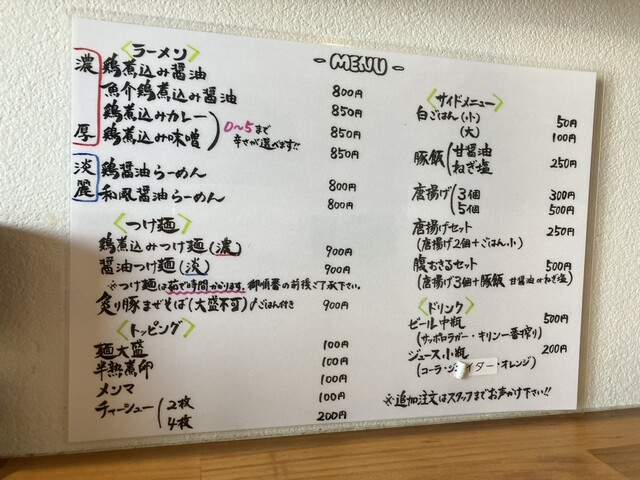 - MENU -
<ラーメン>
濃厚
鶏煮込み醤油 800円
魚介鶏煮込み醤油 850円
鶏煮込みカレー 850円
鶏煮込み味噌 850円
0〜5まで
辛さが選べます!!
淡麗
鶏醤油らーめん 800円
和風醤油らーめん 800円
<つけ麺>
鶏煮込みつけ麺(濃) 900円
醤油つけ麺(淡) 900円
※つけ麺は茹で時間かかります。御順番の前後ご了承下さい。
炙り豚まぜそば(大盛不可)ごはん付き 900円
<トッピング>
麺大盛 100円
半熟煮卵 100円
メンマ 100円
チャーシュー(2枚 100円
4枚 200円
<サイドメニュー>
白ごはん(小) 50円
(大) 100円
豚飯(甘醤油
ねぎ塩 250円
唐揚げ(3個 300円
5個 500円
唐揚げセット 250円
(唐揚げ2個+ごはん小)
腹おさるセット 500円
(唐揚げ3個+豚飯 甘醤油orねぎ塩)
<ドリンク>
ビール中瓶 500円
(サッポロラガー・キリン一番搾り)
ジュース小瓶 200円
(コーラ・イター・オレンジ)
※追加注文はスタッフまでお声かけ下さい!!